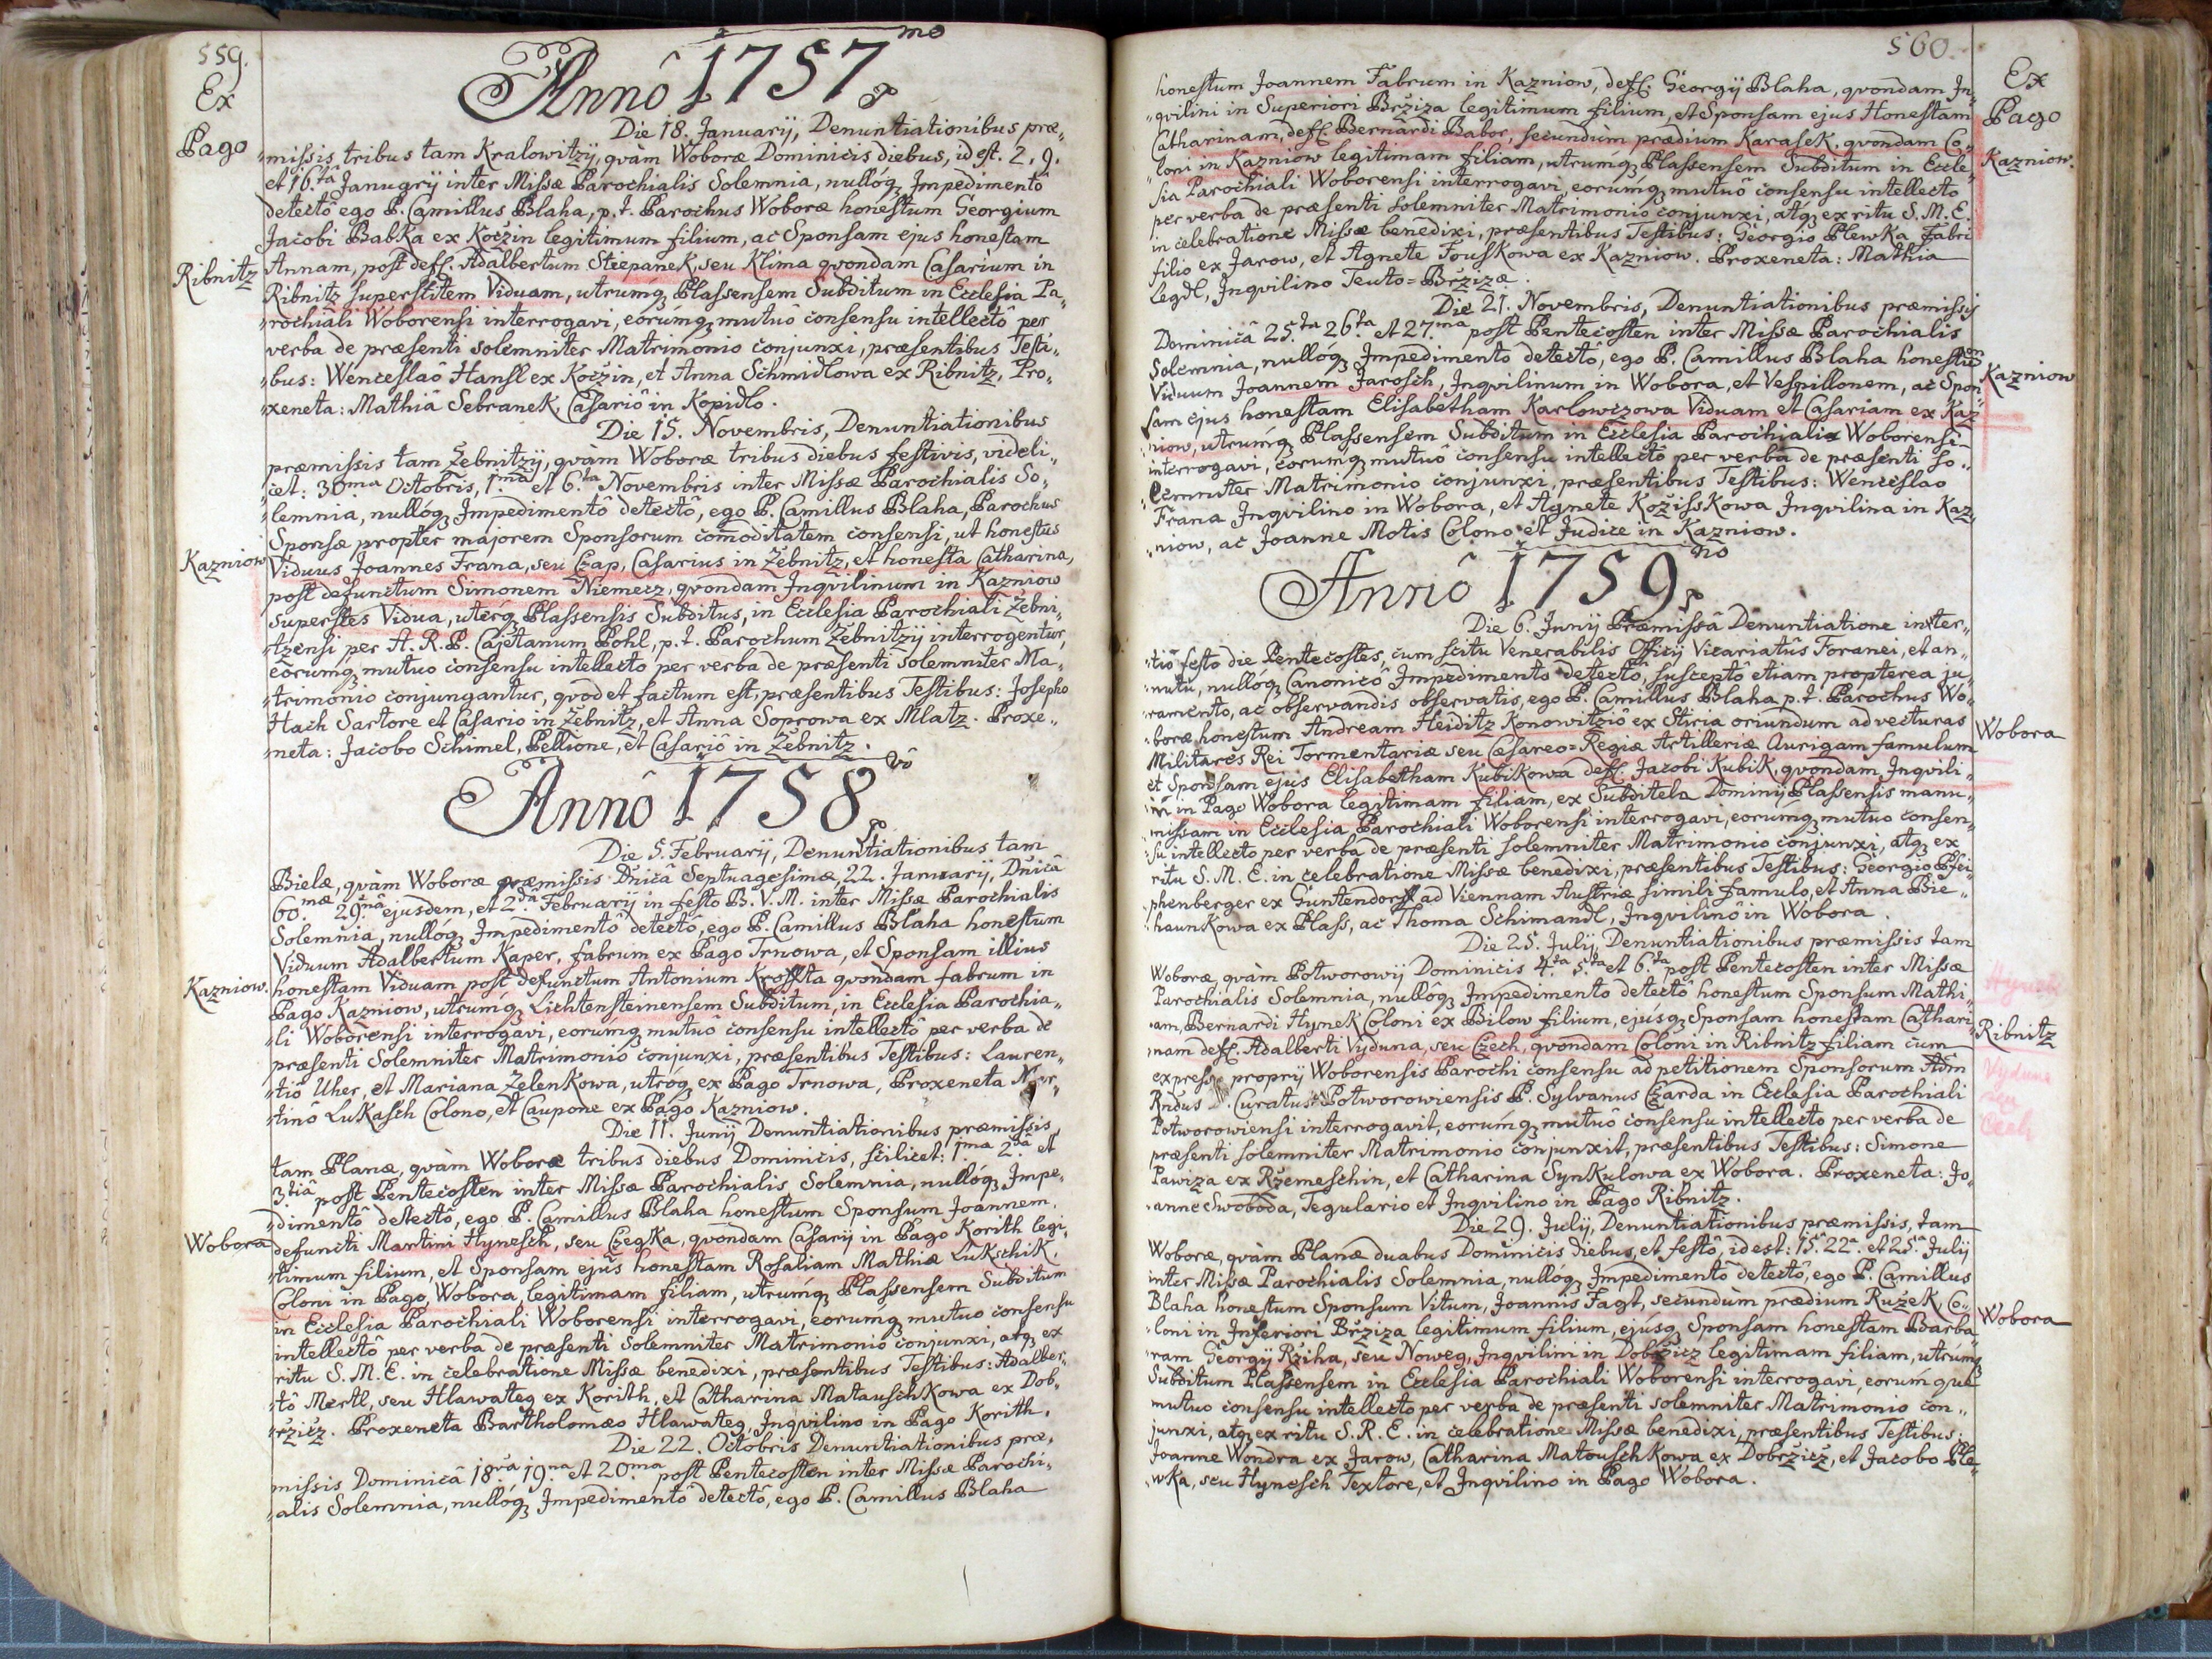 559.
Ex
Pago
Annô 1757mo
Die 18. Januarij, Denuntiationibus præ„
„missis tribus tam Kralowitzij, qvàm Woboræ Dominicis diebus, id est. 2. 9.
et 16.ta Januarij inter Missæ Parochialis Solemnia, nullóq3 Impedimentô
detectô ego P. Camillus Blaha, p. t. Parochus Woboræ honestum Georgium
Jacobi Babka ex Kočzin legitimum filium, ac Sponsam ejus honestam
Ribnitz
Annam, post deff. Adalbertum Stiepanek, seu Klima qvondam Casarium in
Ribnitz superstitem Viduam, utrumq3 Plassensem Subditum in Ecclesia Pa„
„rochiali Woborensi interrogavi, eorúmq3 mutuo consensu intellectô per
verba de præsenti solemniter Matrimonio conjunxi, præsentibus Testi„
„bus: Wenceslaô Hansl ex Kočzin, et Anna Schmidlowa ex Ribnitz, Pro„
„xeneta: Mathiâ Sebranek, Casariô in Kopidlo.
Die 15. Novembris, Denuntiationibus
præmissis tam Žebnitzij, qvàm Woboræ tribus diebus festivis, videli„
„cet: 30ma Octobris, 1.ma et 6.ta Novembris inter Missæ Parochialis So„
„lemnia, nullóq3 Impedimentô detectô, ego P. Camillus Blaha, Parochus
Sponsæ propter majorem Sponsorum comoditatem consensi, ut honestus
Kazniow
Viduus Joannes Frana, seu Czap, Casarius in Žebnitz, et honesta Catharina,
post defunctum Simonem Niemecz, qvondam Inqvilinum in Kazniow
superstes Vidua, uterq3 Plassensis Subditus, in Ecclesia Parochiali Žebni„
„tzensi per A. R. P. Cajetanum Pohl, p. t. Parochum Žebnitzij interrogentur,
eorumq3 mutuo consensu intellecto per verba de præsenti solemniter Ma„
„trimonio conjungantur, qvod et factum est, præsentibus Testibus: Josepho
Hach Sartore et Casario in Žebnitz, et Anna Soprowa ex Mlatz. Proxe„
„neta: Jacobo Schimel, Pellione, et Casariô in Žebnitz.
Annô 1758vô
Die 5. Februarij, Denuntiationibus tam
Bielæ, qvàm Woboræ præmissis Dnica Septuagesimæ, 22. Januarij, Dnicâ
60.mæ 29.nâ ejusdem, et 2.da Februarij in festo B. V. M. inter Missæ Parochialis
Solemnia, nullóq3 Impedimentô detectô, ego P. Camillus Blaha honestum
Viduum Adalbertum Kaper, fabrum ex Pago Trnowa, et Sponsam illius
Kazniow.
honestam Viduam post defunctum Antonium qvondam fabrum in
Pago Kazniow, utrumq3 Lichtensteinensem Subditum, in Ecclesia Parochia„
„li Woborensi interrogavi, eorúmq3 mutuô consensu intellectô per verba de
præsenti Solemniter Matrimonio conjunxi, præsentibus Testibus: Lauren„
„tio Uher, et Mariana Zelenkowa, utróq3 ex Pago Trnowa, Proxeneta
„tinô Lukasch Colono, et Caupone ex Pago Kazniow.
Die 11. Junij Denuntiationibus præmissis
tam Planæ, qvàm Woboræ tribus diebus Dominicis, scilicet: 1.ma 2.da et
3.tiâ post Pentecosten inter Missæ Parochialis Solemnia, nullóq3 Impe„
„dimentô detectô, ego P. Camillus Blaha honestum Sponsum Joannem,
Wobora
defuncti Martini Hynesch, seu Czegka, qvondam Casarij in Pago Korith legi„
„timum filium, et Sponsam ejus honestam Rosaliam Mathiæ Lukschik,
Coloni in Pago Wobora, legitimam filiam, utrumq3 Plassensem Subditum
in Ecclesia Parochiali Woborensi interrogavi, eorumq3 mutuo consensu
intellectô per verba de præsenti Solemniter Matrimonio conjunxi, atq3 ex
ritu S. M. E. in celebratione Missæ benedixi, præsentibus Testibus: Adalber„
„tô Mertl, seu Hlawateg ex Korith, et Catharina Matauschkowa ex Dob„
„ržicz. Proxeneta Bartholomæo Hlawateg, Inqvilino in Pago Korith.
Die 22. Octobris Denuntiationibus præ„
missis Dominicâ 18.va 19.na et 20.ma post Pentecosten inter Missæ Parochi„
„alis Solemnia, nullóq3 Impedimentô detectô, ego P. Camillus Blaha
560.
Ex
Pago
honestum Joannem Fabrum in Kazniow, deff. Georgij Blaha, qvondam In„
„qvilini in Superiori Bržiza legitimum filium, et Sponsam ejus Honestam
Catharinam, deff. Bernardi Babor, secundùm prædium Karasek, qvondam Co„
Kazniow.
„loni in Kazniow legitimam filiam, utrumq3 Plassensem Subditum in Eccle„
sia Parochiali Woborensi interrogavi, eorúmq3 mutuô consensu intellecto
per verba de præsenti solemniter Matrimoniô conjunxi, atq3 ex ritu S. M. E.
in celebratione Missæ benedixi, præsentibus Testibus: Georgio Plewka Fabri
filio ex Jarow, et Agnete Fouskowa ex Kazniow. Proxeneta: Mathia
Inqvilino Teuto=Bržizæ.
Die 21. Novembris, Denuntiationibus præmissis
Dominicâ 25.ta 26ta et 27.ma post Pentecosten inter Missæ Parochialis
Solemnia, nullóq3 Impedimento detectô, ego P. Camillus Blaha honestum
Kazniow
Viduum Joannem Jarosch, Inqvilinum in Wobora, et Vespillonem, ac Spon„
sam ejus honestam Elisabetham Karlowczowa Viduam et Casariam ex Kaz„
„niow, utrumq3 Plassensem Subditum in Ecclesia Parochiali Woborensi
interrogavi, eorumq3 mutuô consensu intellecto per verba de præsenti so„
lemniter Matrimonio conjunxi, præsentibus Testibus: Wenceslao
Frana Inqvilino in Wobora, et Agnete Kožisskowa Inqvilina in Kaz„
„niow, ac Joanne Motis Colono et Judice in Kazniow.
Annô 1759no
Die 6. Junij Præmissâ Denuntiatione inter„
„tiô festo die Pentecostes, cum scitu Venerabilis Officij Vicariatûs Foranei, et an„
„nutu, nullóq3 Canonicô Impedimento detectô, susceptô etiam propterea ju„
„ramento, ac observandis observatis, ego P. Camillus Blaha p. t. Parochus Wo„
Wobora
„boræ honestum Andream Heiditz Konowitziô ex Stiria oriundum ad vecturas
Militares Rei Tormentariæ seu Cæsareo=Regiæ Artilleriæ Aurigam famulum
et Sponsam ejus Elisabetham Kubikowa deff. Jacobi Kubik, qvondam Inqvili„
ni in Pago Wobora legitimam filiam, ex Subditela Dominij Plassensis manu„
„missam in Ecclesia Parochiali Woborensi interrogavi, eorumq3 mutuo consen„
su intellecto per verba de præsenti solemniter Matrimonio conjunxi, atq3 ex
ritu S. M. E. in celebratione Missæ benedixi, præsentibus Testibus: Georgio Pfei„
„phenberger ex Guntendorf ad Viennam Austriæ simili famulo, et Anna Bie„
„haunkowa ex Plass, ac Thoma Schimandl, Inqvilinô in Wobora.
Die 25. Julij, Denuntiationibus præmissis tam
Woboræ, qvàm Potworowij Dominicis 4.ta 5.ta et 6.ta post Pentecosten inter Missæ
Parochialis Solemnia, nullôq3 Impedimento detectô honestum Sponsum Mathi„
„am, Bernardi Hynek Coloni ex Bilow filium, ejusq3 Sponsam honestam Cathari„
Ribnitz
„nam deff. Adalberti Vyduna, seu Czech, qvondam Coloni in Ribnitz filiam cum
Vyduna
seu
Czech
expresso proprij Woborensis Parochi consensu ad petitionem Sponsorum Adm
Rndus Curatus Potworowiensis P. Sylvanus Czarda in Ecclesia Parochiali
Potworowiensi interrogavit, eorúmq3 mutuô consensu intellecto per verba de
præsenti solemniter Matrimonio conjunxit, præsentibus Testibus: Simone
Pawiza ex Ržemeschin, et Catharina Synkulowa ex Wobora. Proxeneta: Jo„
„anne Swoboda, Tegulario et Inqvilino in Pago Ribnitz.
Die 29. Julij, Denuntiationibus præmissis, tam
Woboræ, qvàm Planæ duabus Dominicis diebus, et festô, id est: 15.a 22a. et 25.a Julij
inter Missæ Parochialis Solemnia, nullóq3 Impedimentô detectô, ego P. Camillus
Blaha honestum Sponsum Vitum, Joannis Fagt, secundùm prædium Ružek Co„
Wobora
„loni in Inferiori Bržiza legitimum filium, ejúsq3 Sponsam honestam Barba„
„ram Georgij Rziha, seu Noweg, Inqvilini in Dobržicz legitimam filiam, utrúmq3
Subditum Plassensem in Ecclesia Parochiali Woborensi interrogavi, eorúmque
mutuo consensu intellecto per verba de præsenti solemniter Matrimonio con„
junxi, atq3 ex ritu S. R. E. in celebratione Missæ benedixi, præsentibus Testibus:
Joanne Wondra ex Jarow, Catharina Matouschkowa ex Dobržicž, et Jacobo Ple„
„wka, seu Hynesch Textore, et Inqvilino in Pago Wobora.